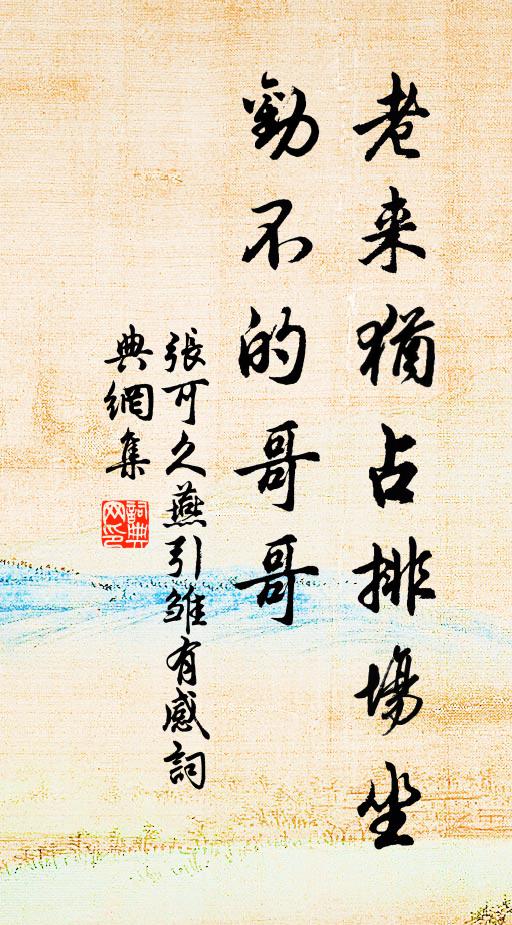 老来猶占排場坐
勸不的哥哥
張可久燕引雏有感詞
典網集
詞典
网印